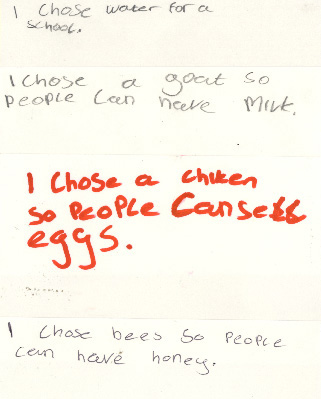 I Chose water for a
school.
I Chose a goat so
People Can have Milk.
I Chose a chiken
so PeoPLe Can sell
eggs.
I Chose bees so PeoPLe
can have honey.